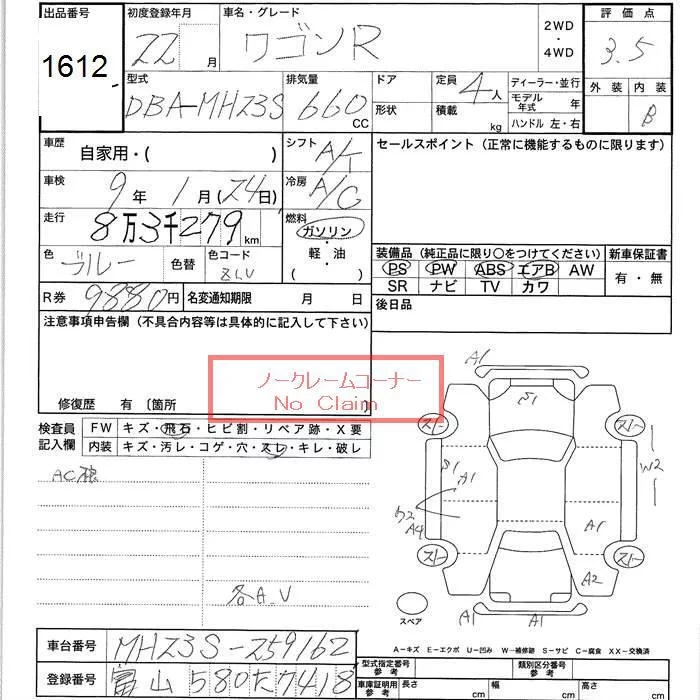 出品番号 初度登録年月 車名・グレード 2WD・4WD 評価点
1612 22 月 ワゴンR 3.5
型式 排気量 ドア 定員 4人 ディーラー・並行 外装 内装
DBA-MHZ3S 660 CC 形状 積載 kg モデル年式 年 B
ハンドル 左・右
車歴 自家用・( ) シフト A/T セールスポイント(正常に機能するものに限ります)
車検 9年1月(24日) 冷房 A/C
走行 8万3千279km 燃料 ガソリン・軽・油 ( )
色 ブルー 色替 色コード 装備品(純正品に限り○をつけてください) 新車保証書
PS PW ABS エアB AW 有・無
SR ナビ TV カワ
R券 9880円 名変通知期限 月 日 後日品
注意事項申告欄(不具合内容等は具体的に記入して下さい)
ノークレームコーナー
No Claim
修復歴 有 〔箇所 〕
検査員記入欄 FW キズ・飛石・ヒビ割・リペア跡・X要
内装 キズ・汚レ・コゲ・穴・スレ・キレ・破レ
A1
S1
スリー スリー
S1 A1 W2
A4 A1
スリー スリー
A2
各A.U
スペア A1 A1
A-キズ E-エクボ U-凹み W-補修跡 S-サビ C-腐食 XX-交換済
車台番号 MHZ3S-259162 型式指定番号 参考 類別区分番号 参考
登録番号 富山 580 た 7418 車庫証明用 参考 長さ cm 幅 cm 高さ cm